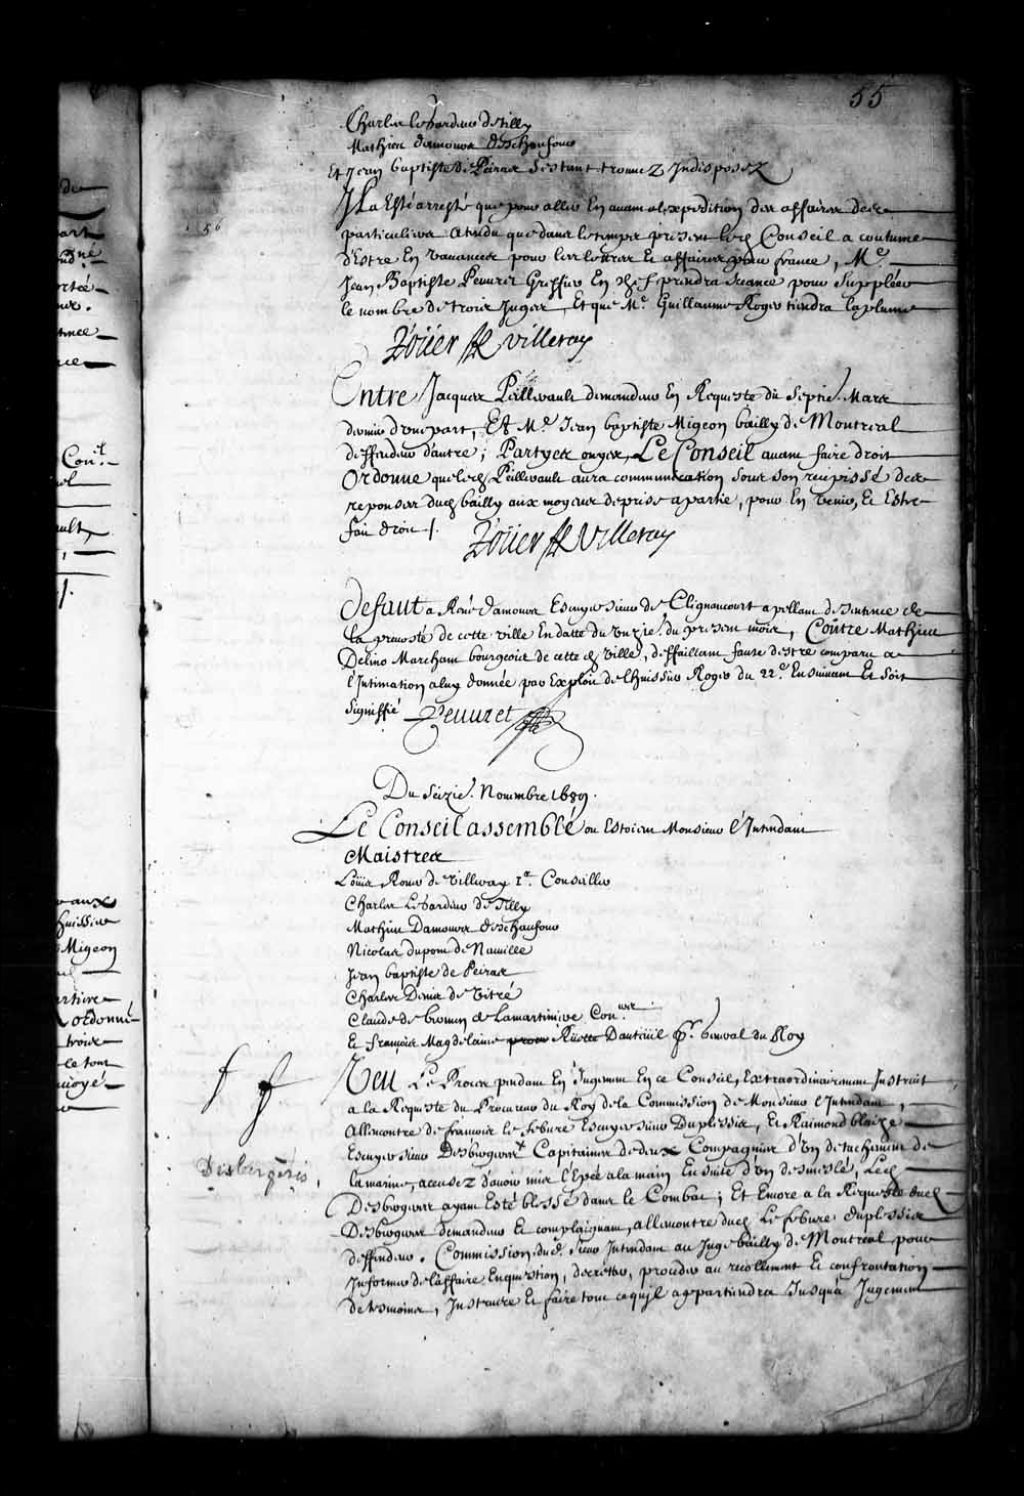 55
Charles Lebardeur de Tilly
Mathieu damours deschaufour
Et Jean baptiste de Peiras Sestant trouuez Indisposez
56
Il a Esté arresté que pour aller En auant a l'expedition des affaires des
particuliers attendu que dans le temps present led. Conseil a coutume
d'Estre En vacances pour les lettres et affaires pour france, Me.
Jean Baptiste Peuuret Greffier En chef prendra Seance pour Suppléer
le nombre de trois Juges, Et que Me. Guillaume Roger tiendra la plume
Roüer de Villeray
Entre Jacques Pillereault demandeur En Requeste du Septie. Mars
dernier d'une part, Et Me. Jean baptiste Migeon bailly de Montreal
deffendeur d'autre; Partyes ouyes, Le Conseil auant faire droit
Ordonne que led. Pillereault aura communication sous son recipissé des
reponses dud. bailly aux moyens de prise a partie, pour En venir, et Estre
fait droit /.
Roüer de Villeray
Defaut a René Damours Escuyer sieur de Clignancourt apellant de sentence de
la preuosté de cette ville En datte du unzie. du present mois, Contre Mathieu
Delino Marchant bourgeois de cette d. ville, deffaillant faute destre comparu a
l'Intimation a luy donnée par Exploit de l'huissier Roger du 22.e Ensuiuant Et soit
Signiffié
Peuuret
Du Seizie. Nouembre 1689.
Le Conseil assemblé ou Estoient Monsieur l'Intendant
Maistres
Loüis Roüer de Villeray 1er. Conseiller
Charles Lebardeur de Tilly
Mathieu Damours deschaufour
Nicolas dupont de Neuuille
Jean baptiste de Peiras
Charles Denis de Vitré
Claude de bermen de Lamartiniere Coners.
Et François Magdelaine Ruette Dauteüil Pr. General du Roy
Veu Le Proces pendant En Jugement En ce Conseil, Extraordinairement Instruit
a la Requeste du Procureur du Roy de la Commission de Monsieur l'Intendant,
Allencontre de francois le febure Escuyer sieur Duplessis, Et Raimond blaize
Escuyer sieur Desbergeres Capitaines de deux Compagnies d'Un detachement de
la marine, accusez d'auoir mis l'Epée a la main En suite d'Un desmeslé, Led.
Desbergeres,
Desbergeres ayant Esté blessé dans le Combat; Et Encore a la Requeste dud.
Desbergeres demandeur Et complaignant, allencontre dud. Le febure duplessis
deffendeur. Commission dud. sieur Intendant au Juge bailly de Montreal pour
Informer de l'affaire En question, decretter, proceder au recollement Et confrontation
de tesmoins, Instruire Et faire tout ce qu'il appartiendra Jusqu'a Jugement